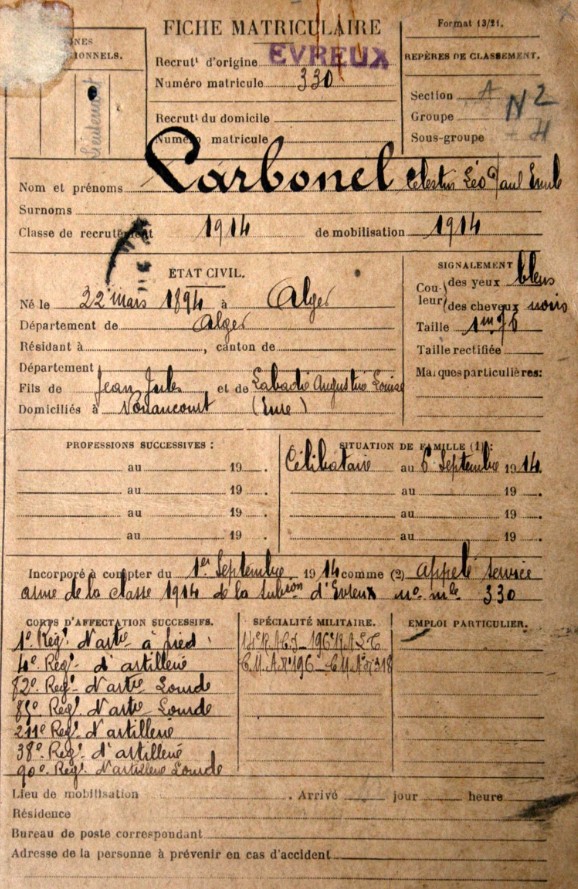 FICHE MATRICULAIRE
Format 13/21.
Recrut! d'origine EVREUX
Numéro matricule 330
Recrut! du domicile
Numéro matricule
REPÈRES DE CLASSEMENT.
Section A
Groupe N 2
Sous-groupe 4
Nom et prénoms Carbonel Célestin Léo Paul Emile
Surnoms
Classe de recrutement 1914 de mobilisation 1914
ÉTAT CIVIL.
Né le 22 mars 1894 à Alger
Département de Alger
Résidant à , canton de
Département
Fils de Jean Jules et de Labadie Augustin Louise
Domiciliés à Nonancourt (Eure)
SIGNALEMENT
Couleur des yeux bleus
des cheveux noirs
Taille 1m76
Taille rectifiée
Marques particulières:
PROFESSIONS SUCCESSIVES :
au 19 .
au 19 .
au 19 .
au 19 .
SITUATION DE FAMILLE (1) :
Célibataire au 6 Septembre 1914
au 19 .
au 19 .
au 19 .
Incorporé à compter du 1er Septembre 1914 comme (2) appelé service
armé de la classe 1914 de la Subion d'Evreux no mle 330
CORPS D'AFFECTATION SUCCESSIFS.
1e Régt d'artie à pied
4e Régt d'artillerie
82e Régt d'artie Lourde
85e Régt d'artie Lourde
211e Régt d'artillerie
38e Régt d'artillerie
90e Régt d'artillerie Lourde
SPÉCIALITÉ MILITAIRE.
EMPLOI PARTICULIER.
Lieu de mobilisation . Arrivé jour heure
Résidence
Bureau de poste correspondant
Adresse de la personne à prévenir en cas d'accident